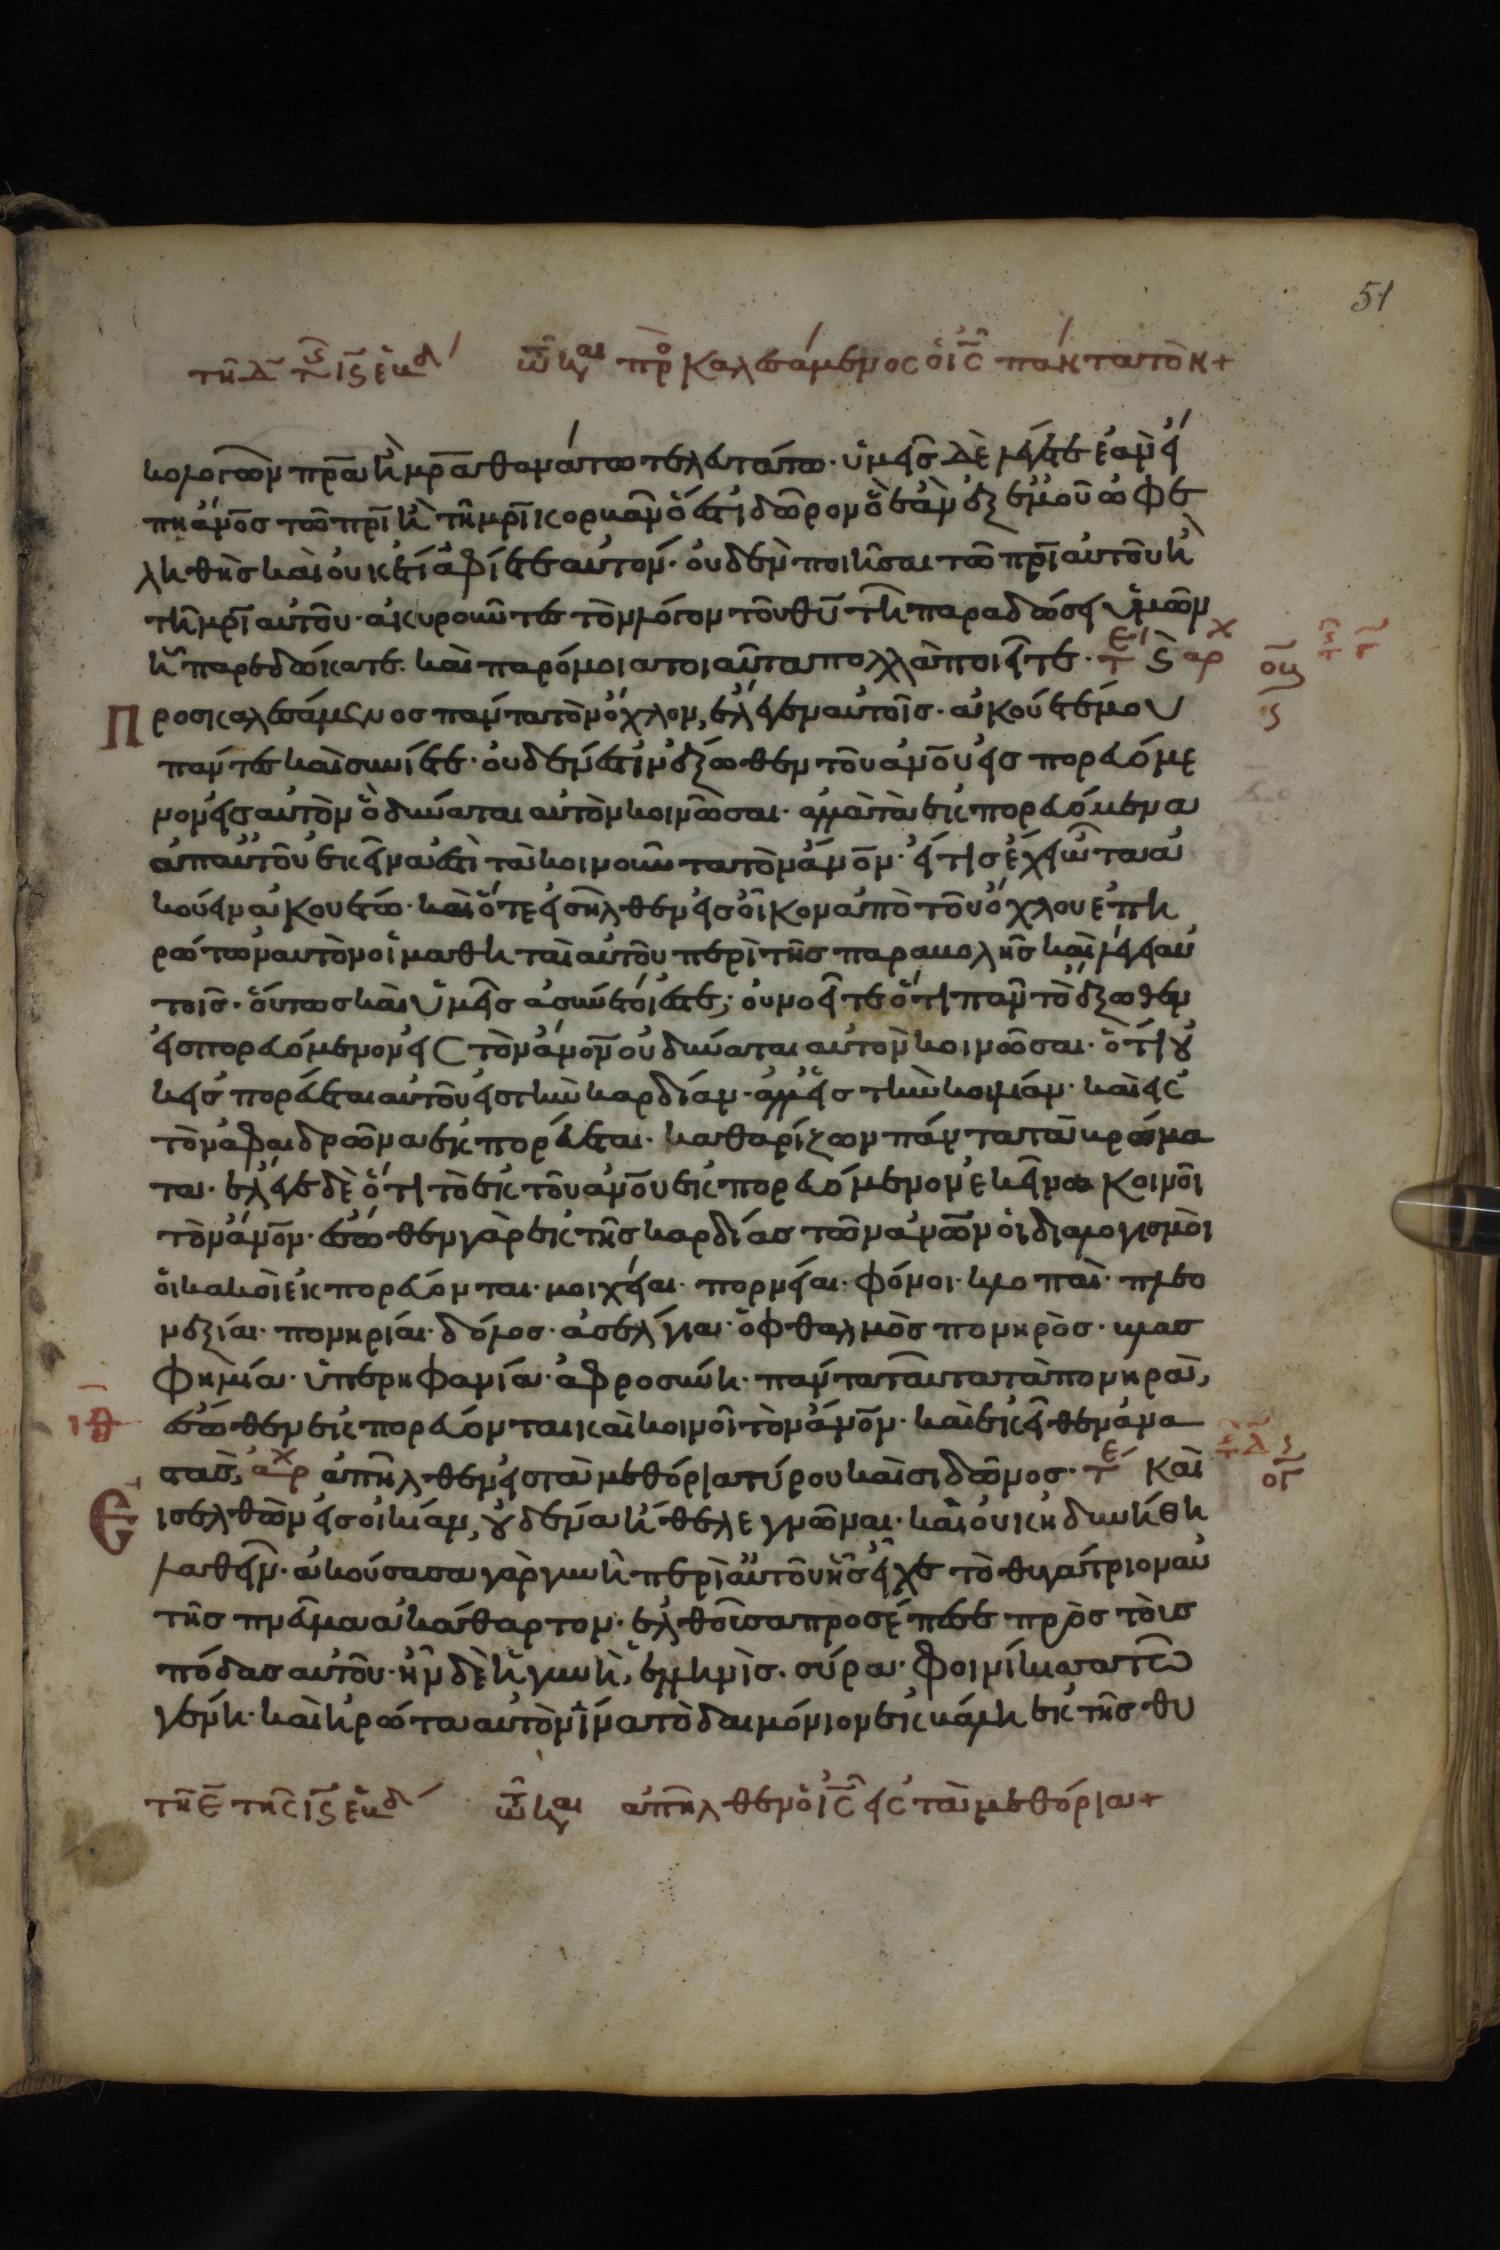 51
τῆ δ τ ις ἑβδ τῶ και προ καλεσάμενος ὁ ις πάντα τὸν +
κολογῶν πρα ἢ μρα θανάτω τελευτάτω· ὑμεῖς δὲ λέγετε ἐὰν εἴ
πη ἄνος τῶ πρι ἢ τῆ μρι κορβᾶν ὅ ἐστι δῶρον ὃ ἐὰν ἐξ ἐμοῦ ὠφε
ληθῆς καὶ οὐκέτι ἀφίετε αὐτον· οὐδὲν ποιῆσαι τῶ πρι αὐτοῦ ἢ
τῆ μρι αὐτοῦ· ἀκυροῦντες τὸν λόγον τοῦ θυ τῆ παραδώσει ὑμῶν
ἧ παρεδώκατε· καὶ παρόμοια τοιαῦτα πολλὰ ποιεῖτε· τε ς αρχ
Προσκαλεσάμενος πάντα τὸν ὄχλον, ἔλεγεν αὐτοῖς· ἀκούετέ μου
πάντες καὶ συνίετε· οὐδέν ἐστιν ἔξωθεν τοῦ ἀνου εἰσπορευόμε
νον εἰς αὐτὸν ὃ δύναται αὐτὸν κοινῶσαι· ἀλλὰ τὰ ἐκπορευόμενα
ἀπ αὐτοῦ ἐκεῖνα ἐστι τὰ κοινοῦντα τὸν ἄνον· εἴ τις ἔχει ὦτα ἀ
κούειν ἀκουέτω· καὶ ὅτε εἰσῆλθεν εἰς οἶκον ἀπὸ τοῦ ὄχλου ἐπη
ρώτων αὐτὸν οἱ μαθηταὶ αὐτοῦ περὶ τῆς παραβολῆς καὶ λέγει αὐ
τοῖς· οὕτως καὶ ὑμεῖς ἀσύνετοί ἐστε; οὐ νοεῖτε ὅτι πᾶν τὸ ἔξωθεν
εἰσπορευόμενον εἰς τὸν ἄνον οὐ δύναται αὐτὸν κοινῶσαι· ὅτι οὐ
κ εἰσπορεύεται αὐτοῦ εἰς τὴν καρδίαν· ἀλλ εἰς τὴν κοιλίαν· καὶ εἰς
τὸν ἀφαιδρῶνα ἐκπορεύεται· καθαρίζων πάντα τὰ βρώμα
τα· ἔλεγε δὲ ὅτι τὸ ἐκ τοῦ ἀνου ἐκπορευόμενον ἐκεῖνο κοινοῖ
τὸν ἄνον· ἔσωθεν γὰρ ἐκ τῆς καρδίας τῶν ἀνων οἱ διαλογισμοὶ
οἱ κακοὶ ἐκπορεύονται· μοιχεῖαι· πορνεῖαι· φόνοι· κλοπαὶ· πλεο
νεξίαι· πονηρίαι· δόλος· ἀσέλγεια· ὀφθαλμὸς πονηρὸς· βλασ
φημία· ὑπερηφανία· ἀφροσύνη· πάντα ταῦτα τὰ πονηρὰ,
ιθ ἔσωθεν ἐκπορεύονται καὶ κοινοῖ τὸν ἄνον· καὶ ἐκεῖθεν ἀνα
στὰς, αρχ ἀπῆλθεν εἰς τὰ μεθόρια τύρου καὶ σιδῶνος· τε Καὶ
Εἰσελθὼν εἰς οἰκίαν, οὐδένα ἤθελε γνῶναι· καὶ οὐκ ἠδυνήθη
λαθεῖν· ἀκούσασα γὰρ γυνὴ περὶ αὐτοῦ ἧς εἶχε τὸ θυγάτριον αὐ
τῆς πνεῦμα ἀκάθαρτον· ἐλθοῦσα προσέπεσε πρὸς τοὺς
πόδας αὐτοῦ· ἦν δὲ ἡ γυνὴ, ἑλληνὶς· σύρα· φοινίκισσα τῶ
γένει· καὶ ἠρώτα αὐτὸν ἵνα τὸ δαιμόνιον ἐκβάλη ἐκ τῆς θυ
τῆ ε τῆς ις ἑβδ τῶ και ἀπῆλθεν ὁ ις εἰς τὰ μεθόρια +